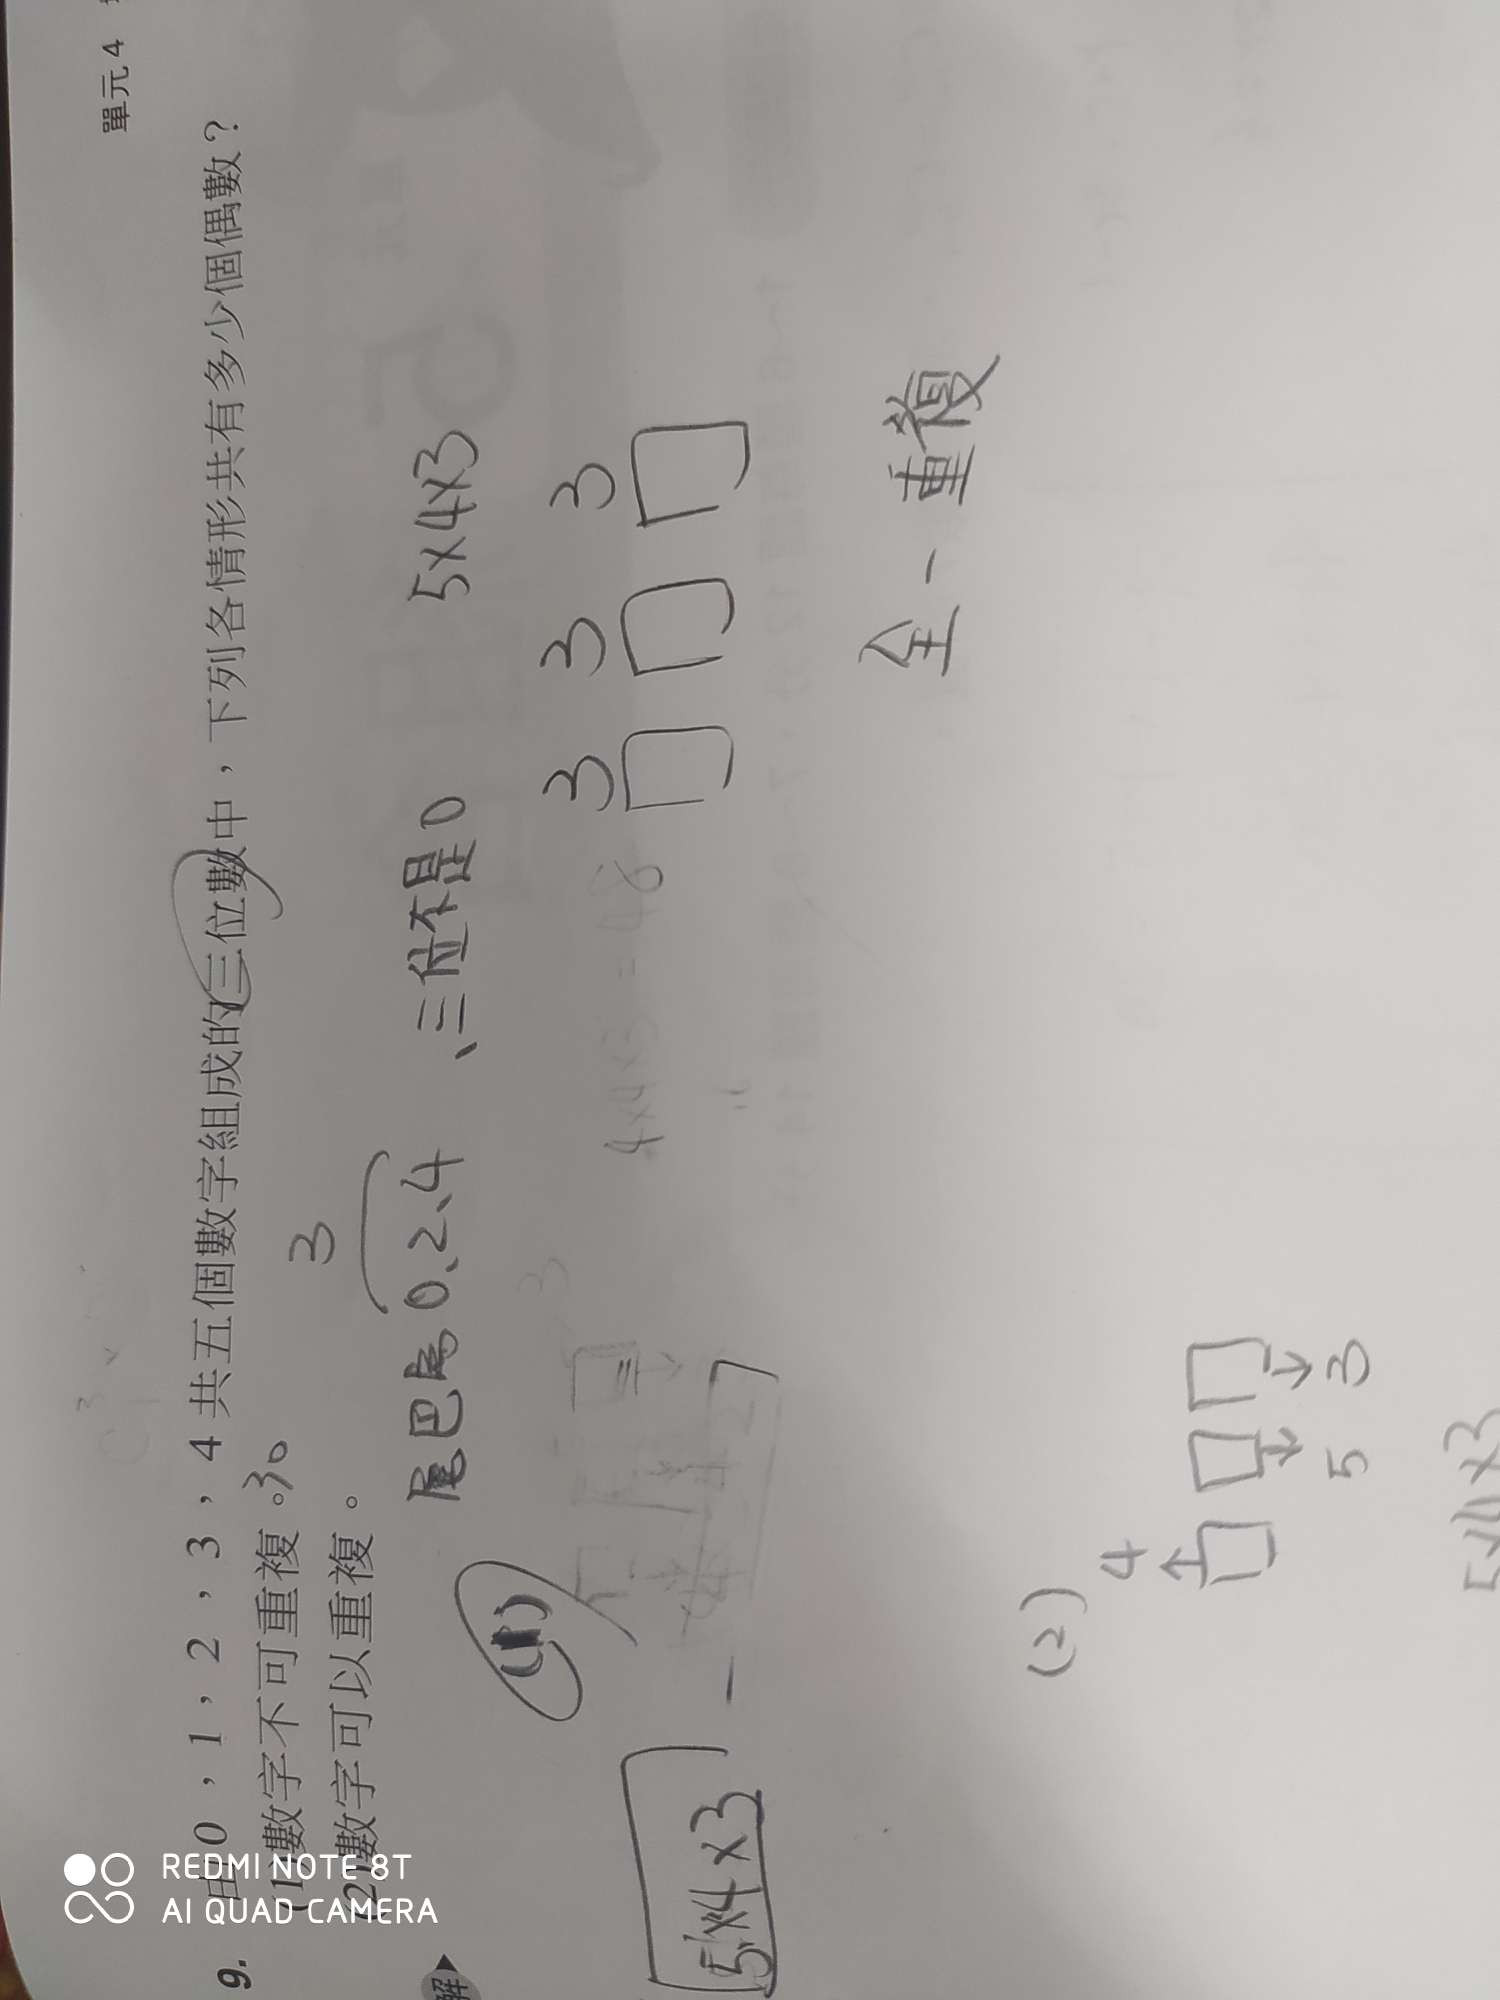 單元 4
9. 由 0，1，2，3，4 共五個數字組成的三位數中，下列各情形共有多少個偶數？
(1)數字不可重複。30
(2)數字可以重複。
3
解 尾巴為 0、2、4 、三位不是 0 5×4×3
(1)
3
4×4×3 = 48
3 3 3
5×4×3 −
全 - 重複
(2)
4
5 3
5×4×3
REDMI NOTE 8T
AI QUAD CAMERA